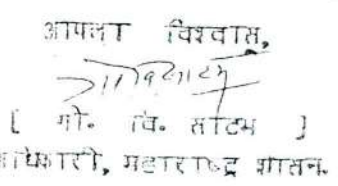 आपला विश्वासू,
[ गो. वि. साटम ]
धिकारी, महाराष्ट्र शासन.